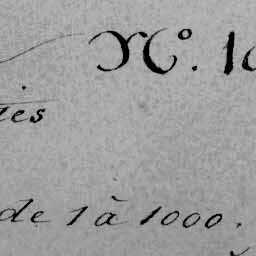 N.º 1
tes
de 1 à 1000.